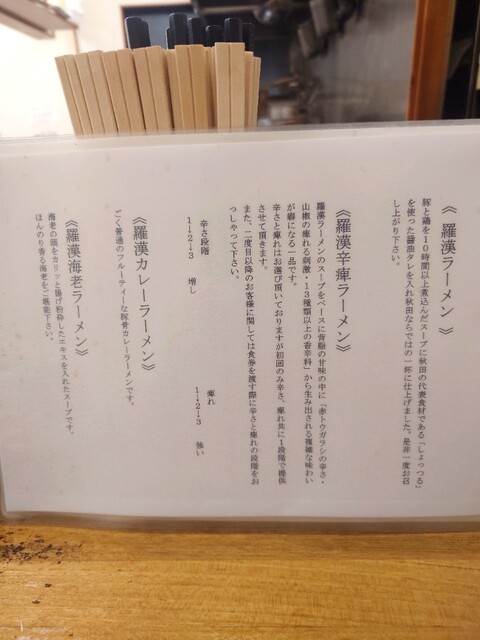 《 羅漢ラーメン 》
豚と鶏を10時間以上煮込んだスープに秋田の代表食材である「しょっつる」
を使った醤油タレを入れ秋田ならではの一杯に仕上げました。是非一度お召
し上がり下さい。
《羅漢辛痺ラーメン》
羅漢ラーメンのスープをベースに背脂の甘味の中に「赤トウガラシの辛さ・
山椒の痺れる刺激・13種類以上の香辛料」から生み出される複雑な味わい
が癖になる一品です。
辛さと痺れはお選び頂いておりますが初回のみ辛さ、痺れ共に1段階で提供
させて頂きます。
また、二度目以降のお客様に関しては食券を渡す際に辛さと痺れの段階をお
っしゃって下さい。
辛さ段階 痺れ
1→2→3 増し 1→2→3 強い
《羅漢カレーラーメン》
ごく普通のフルーティーな豚骨カレーラーメンです。
《羅漢海老ラーメン》
海老の頭をカリッと揚げ粉砕したエキスを入れたスープです。
ほんのり香る海老をご堪能下さい。